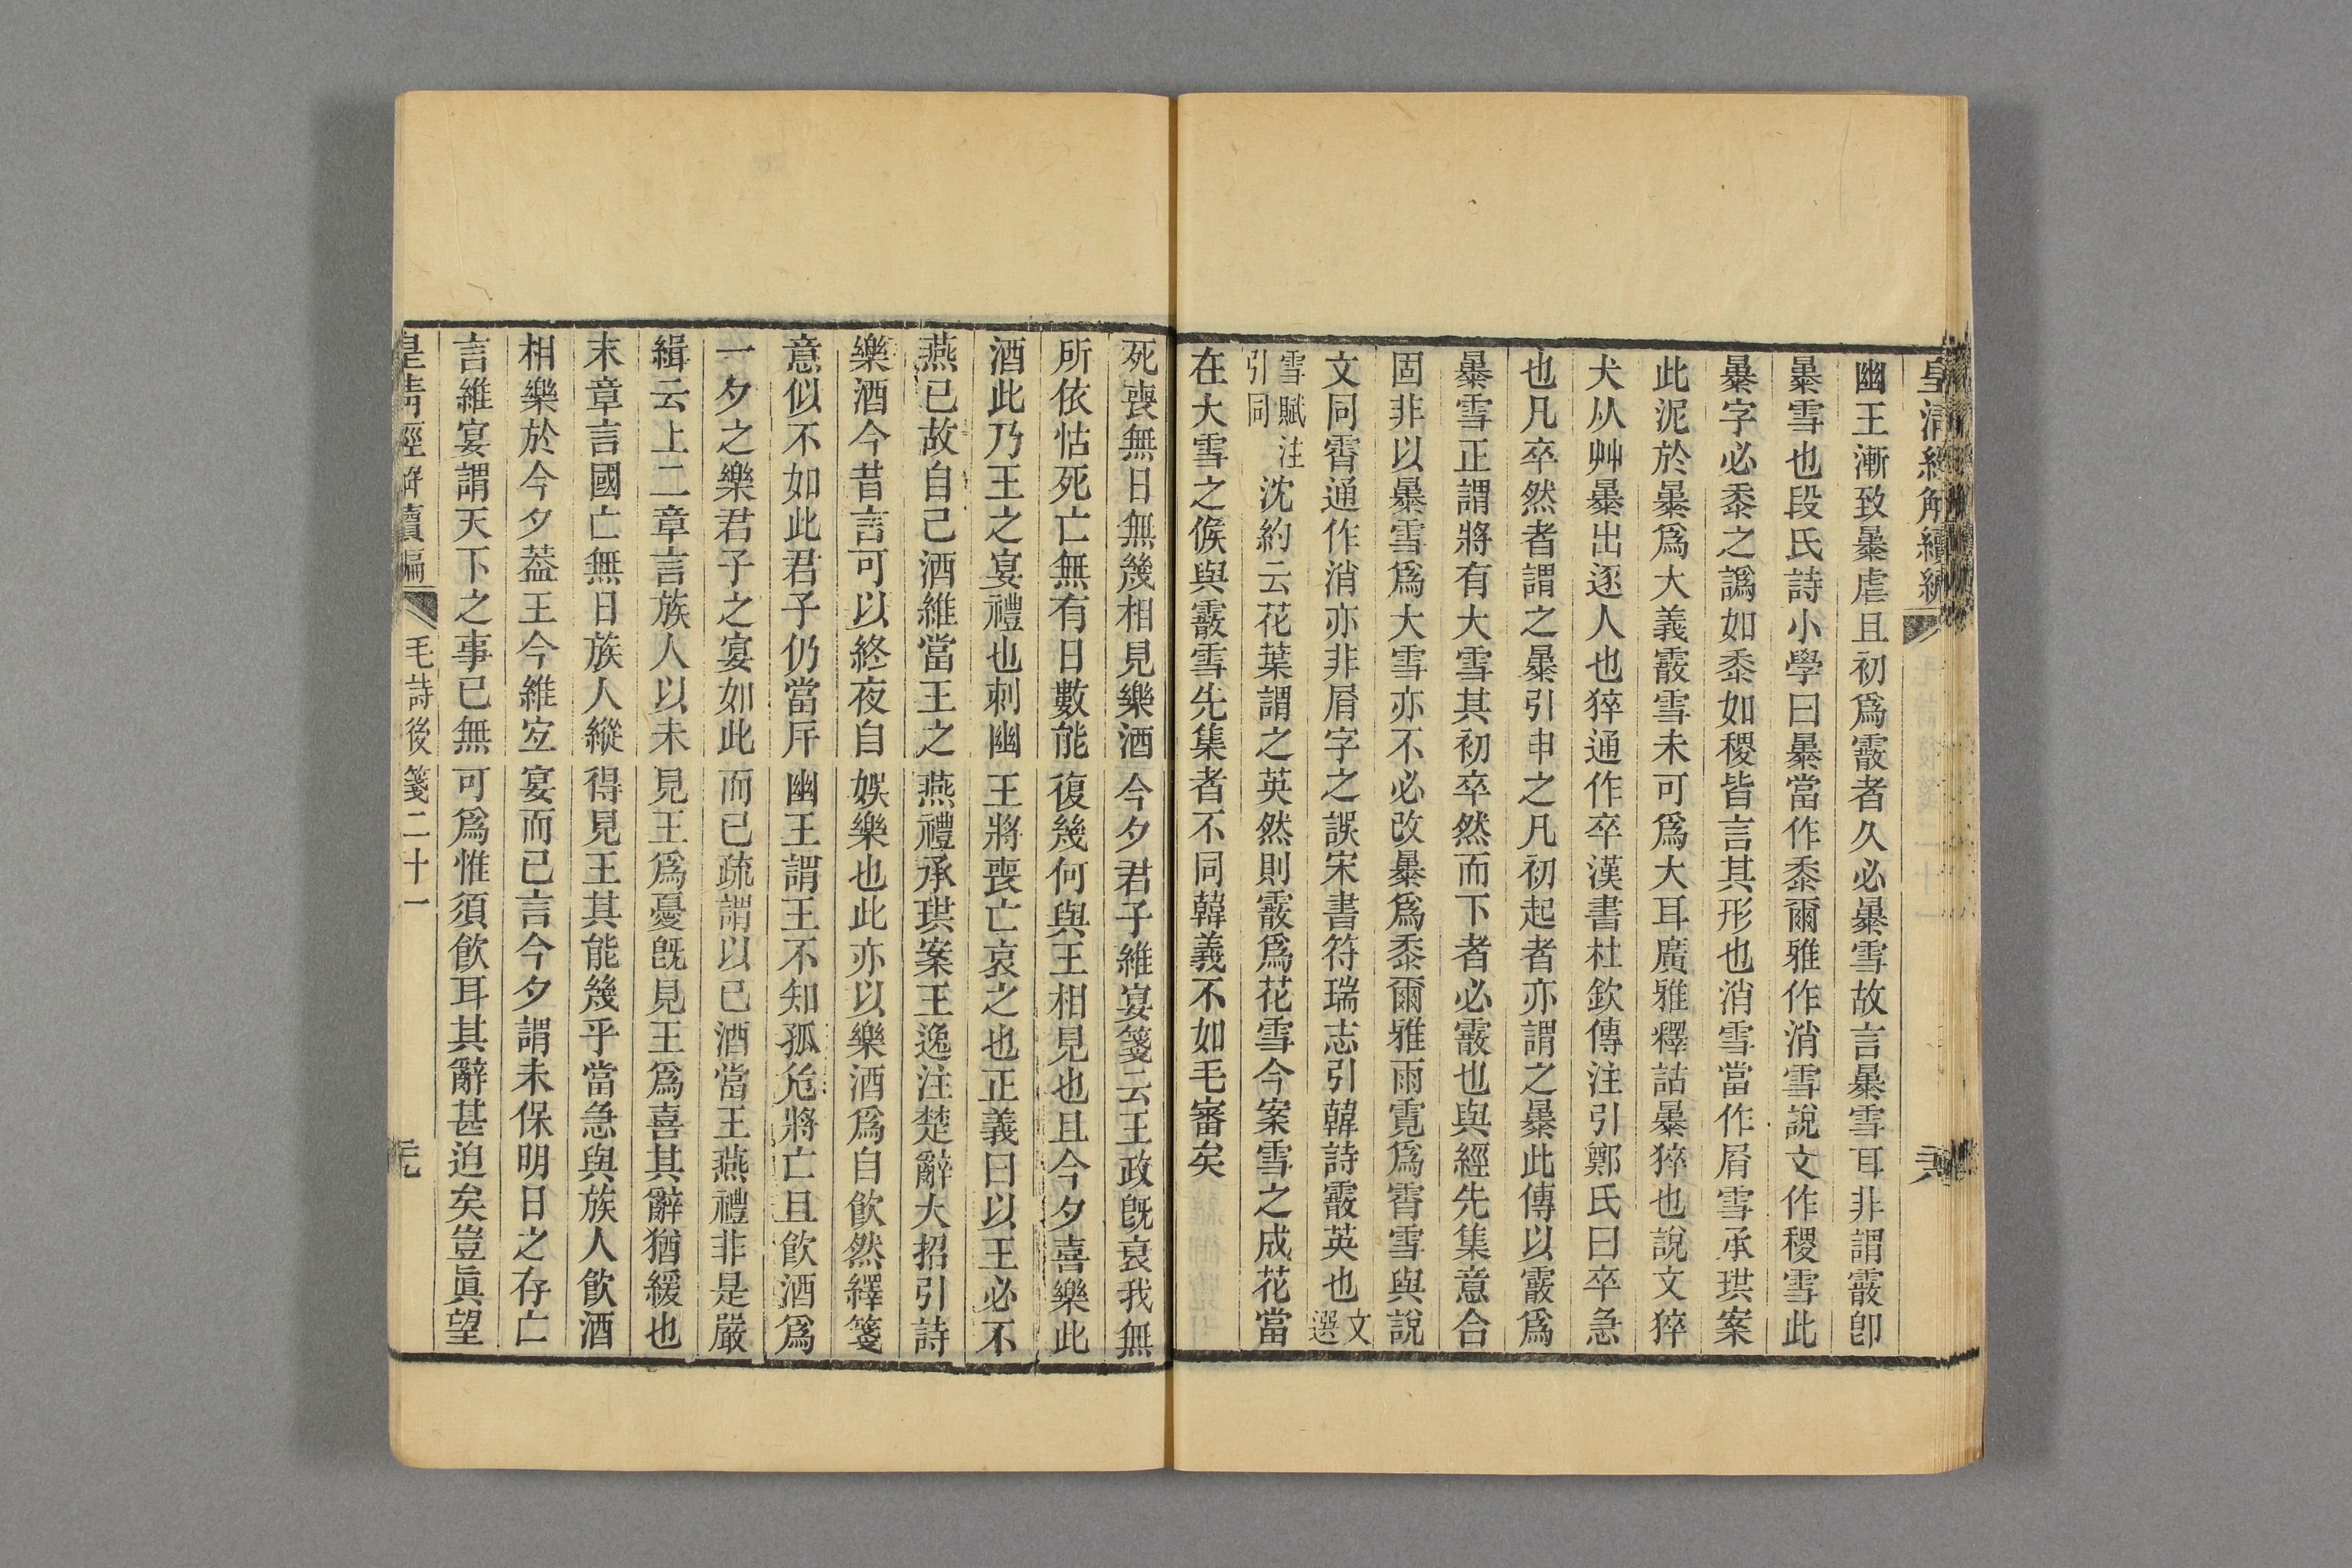 皇清經解續編
幽王漸致暴虐且初爲霰者久必暴雪故言暴雪耳非謂霰卽
暴雪也段氏詩小學曰暴當作黍爾雅作消雪說文作稷雪此
暴字必黍之譌如黍如稷皆言其形也消雪當作屑雪承珙案
此泥於暴爲大義霰雪未可爲大耳廣雅釋詁暴猝也說文猝
犬从艸暴出逐人也猝通作卒漢書杜欽傳注引鄭氏曰卒急
也凡卒然者謂之暴引申之凡初起者亦謂之暴此傳以霰爲
暴雪正謂將有大雪其初卒然而下者必霰也與經先集意合
固非以暴雪爲大雪亦不必改暴爲黍爾雅雨霓爲霄雪與說
文同霄通作消亦非屑字之誤宋書符瑞志引韓詩霰英也文選
雪賦注引同沈約云花葉謂之英然則霰爲花雪今案雪之成花當
在大雪之候與霰雪先集者不同韓義不如毛審矣
死喪無日無幾相見樂酒今夕君子維宴箋云王政旣衰我無
所依怙死亡無有日數能復幾何與王相見也且今夕喜樂此
酒此乃王之宴禮也刺幽王將喪亡哀之也正義曰以王必不
燕已故自己酒維當王之燕禮承珙案王逸注楚辭大招引詩
樂酒今昔言可以終夜自娛樂也此亦以樂酒爲自飮然繹箋
意似不如此君子仍當斥幽王謂王不知孤危將亡且飮酒爲
一夕之樂君子之宴如此而已疏謂以已酒當王燕禮非是嚴
緝云上二章言族人以未見王爲憂旣見王爲喜其辭猶緩也
末章言國亡無日族人縱得見王其能幾乎當急與族人飮酒
相樂於今夕葢王今維宐宴而已言今夕謂未保明日之存亡
言維宴謂天下之事已無可爲惟須飮耳其辭甚迫矣豈眞望
皇清經解續編 毛詩後箋二十一 元